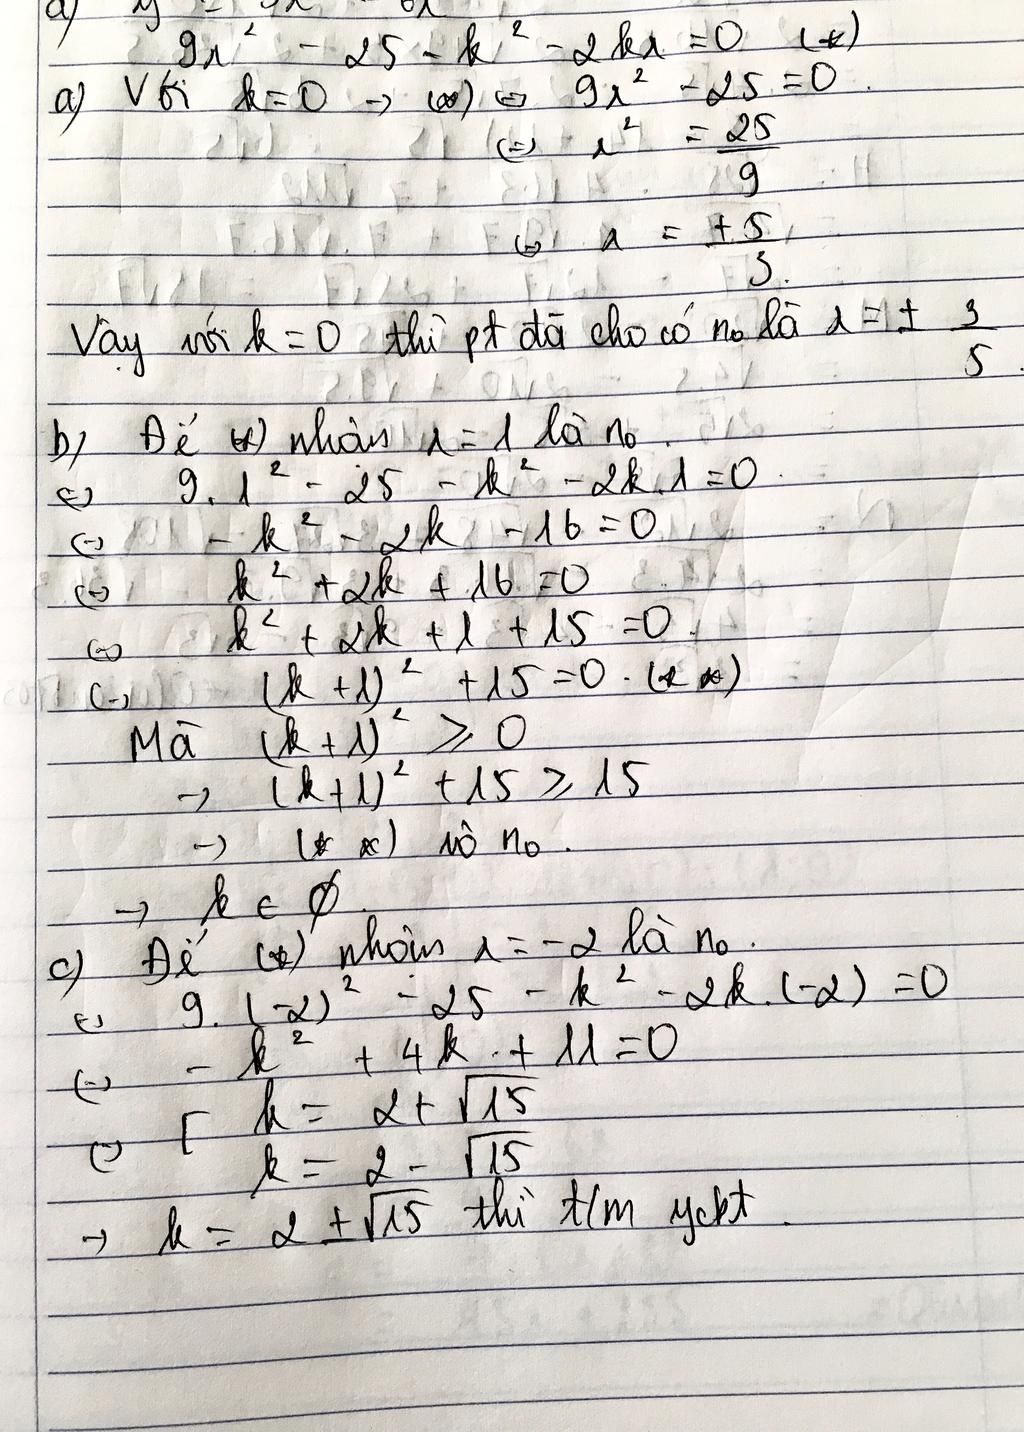 a)
9x² - 25 - k² - 2kx = 0 (*)
a) Với k = 0 → (*) ⇔ 9x² - 25 = 0.
⇔ x² = 25/9
⇔ x = ±5/3.
Vậy với k = 0 thì pt đã cho có no là x = ± 3/5.
b) Để (*) nhận x = 1 là no.
⇔ 9.1² - 25 - k² - 2k.1 = 0.
⇔ - k² - 2k - 16 = 0
⇔ k² + 2k + 16 = 0
⇔ k² + 2k + 1 + 15 = 0.
⇔ (k + 1)² + 15 = 0. (* *)
Mà (k + 1)² ⩾ 0
→ (k + 1)² + 15 ⩾ 15
→ (* *) vô no.
→ k ∈ ∅.
c) Để (*) nhận x = -2 là no.
⇔ 9.(-2)² - 25 - k² - 2k.(-2) = 0
⇔ - k² + 4k + 11 = 0
⇔ [ k = 2 + √15
k = 2 - √15
→ k = 2 ± √15 thì t/m yckt.